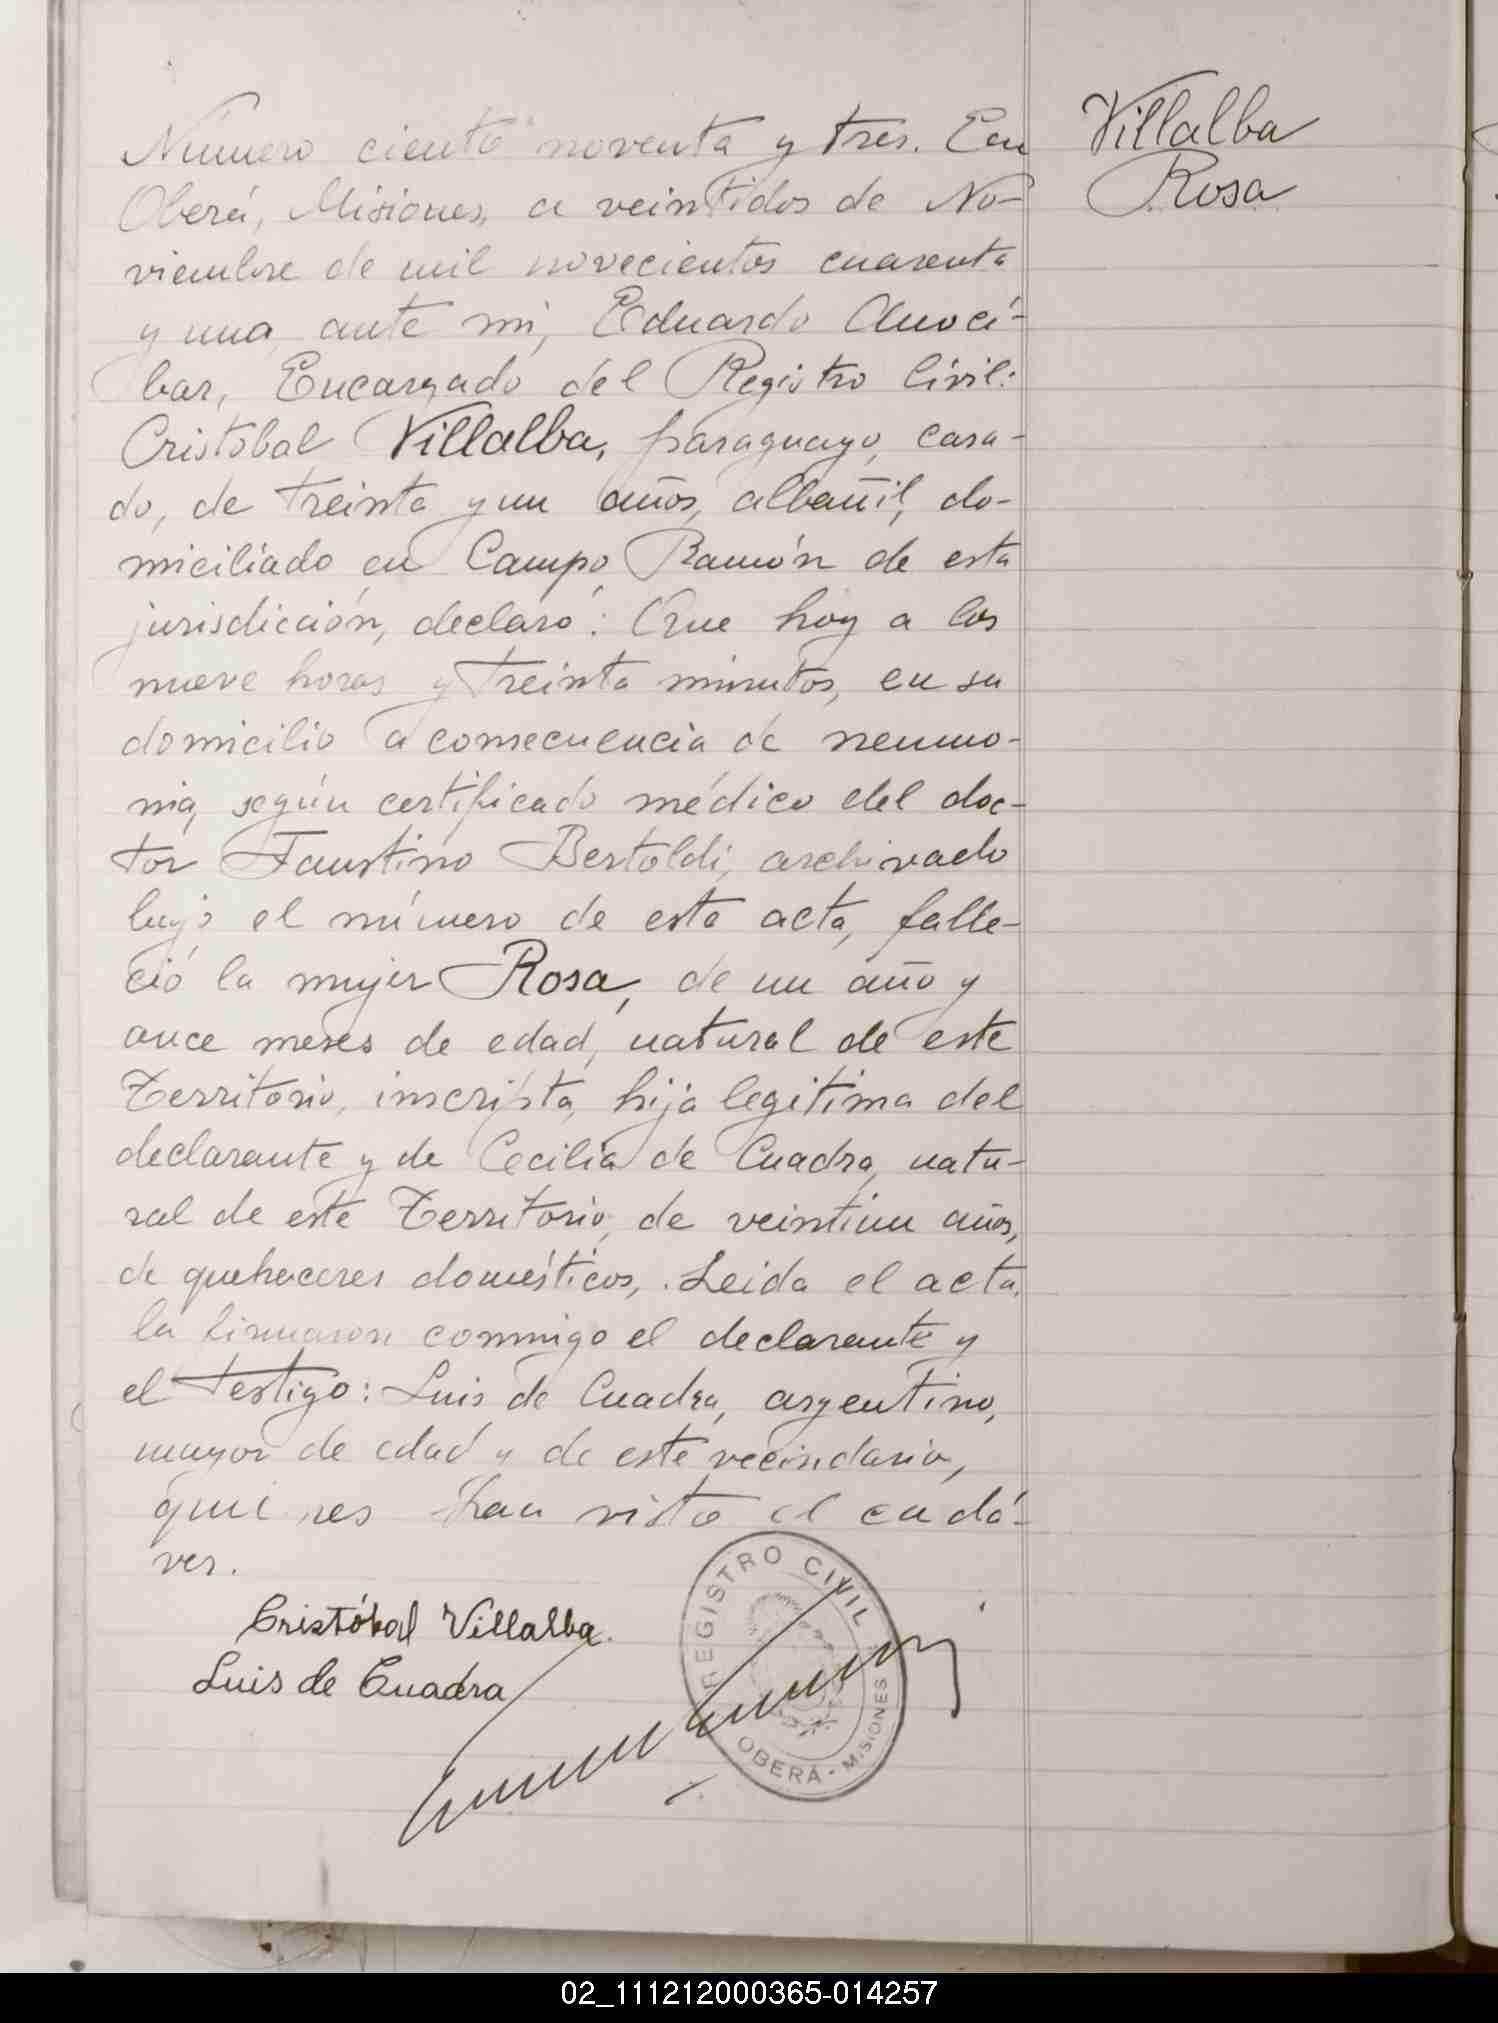 Villalba
Rosa
Número ciento noventa y tres. En
Oberá, Misiones, a veintidos de No-
viembre de mil novecientos cuarenta
y uno, ante mí, Eduardo Anocí-
bar, Encargado del Registro Civil:
Cristobal Villalba, paraguayo, casa-
do, de treinta y un años, albañil, do-
miciliado en Campo Ramón de esta
jurisdicción, declaró: Que hoy a las
nueve horas y treinta minutos, en su
domicilio a consecuencia de neumo-
nia, según certificado médico del doc-
tor Faustino Bertoldi, archivado
bajo el número de esta acta, falle-
ció la mujer Rosa, de un año y
once meses de edad, natural de este
Territorio, inscripta, hija legitima del
declarante y de Cecilia de Cuadra, natu-
ral de este Territorio, de veintiun años,
de quehaceres domésticos, . Leida el acta,
la firmaron conmigo el declarante y
el testigo: Luis de Cuadra, argentino,
mayor de edad y de este vecindario,
quienes han visto el cadá-
ver.
Cristóbal Villalba.
Luis de Cuadra
REGISTRO CIVIL
OBERÁ - MISIONES
02_111212000365-014257